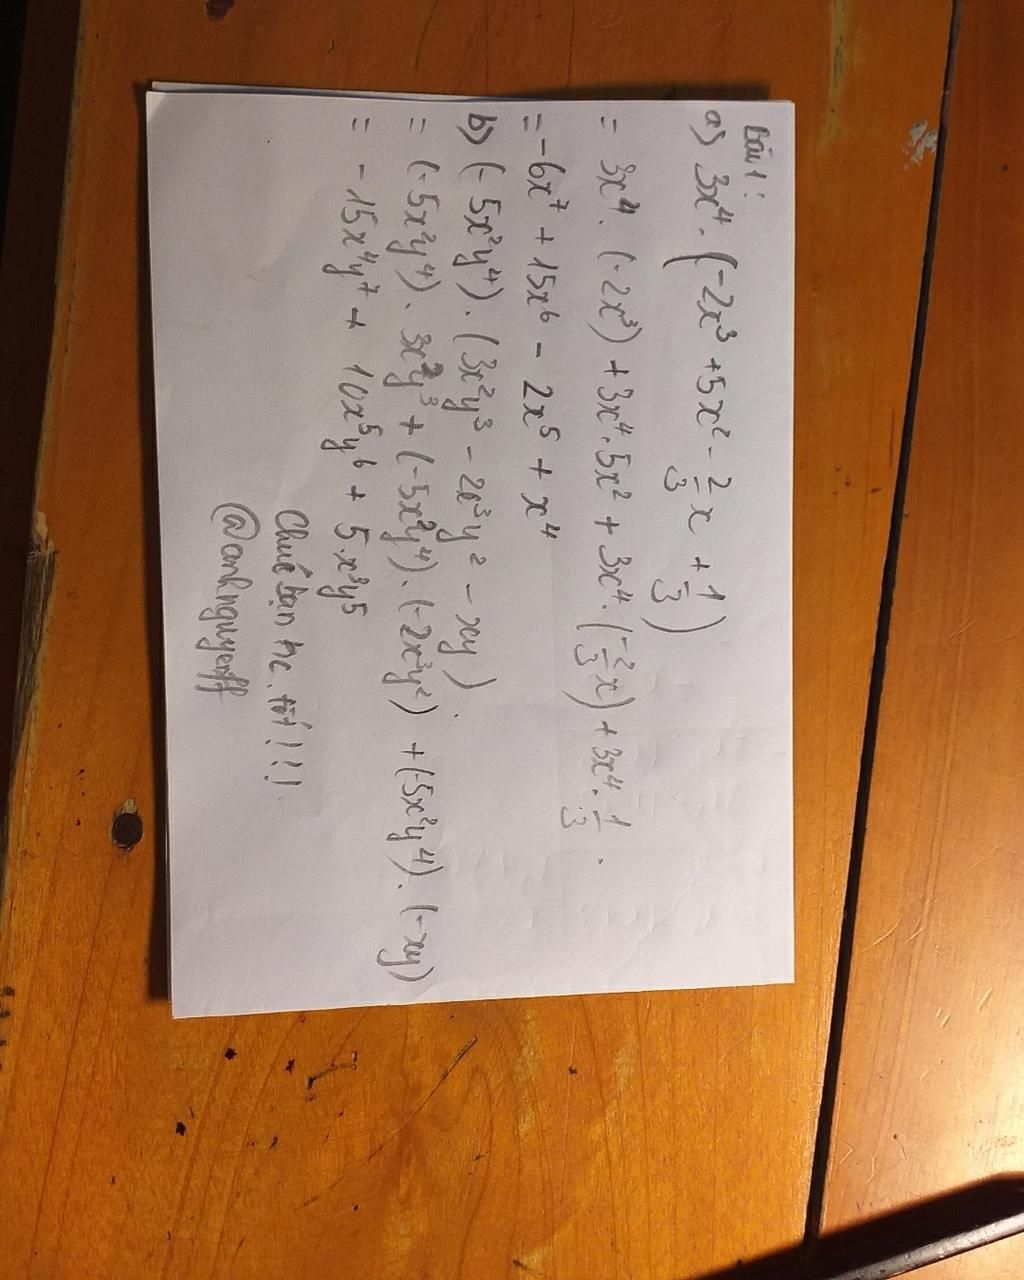 Bài 1:
a) 3x⁴. (-2x³ + 5x² - 2/3 x + 1/3)
= 3x⁴. (-2x³) + 3x⁴. 5x² + 3x⁴. (-2/3 x) + 3x⁴. 1/3.
= -6x⁷ + 15x⁶ - 2x⁵ + x⁴
b) (-5x²y⁴). (3x²y³ - 2x³y² - xy).
= (-5x²y⁴). 3x²y³ + (-5x²y⁴). (-2x³y²) + (-5x²y⁴). (-xy)
= -15x⁴y⁷ + 10x⁵y⁶ + 5x³y⁵
Chúc bạn hc tốt!!!
@anhnguyenff